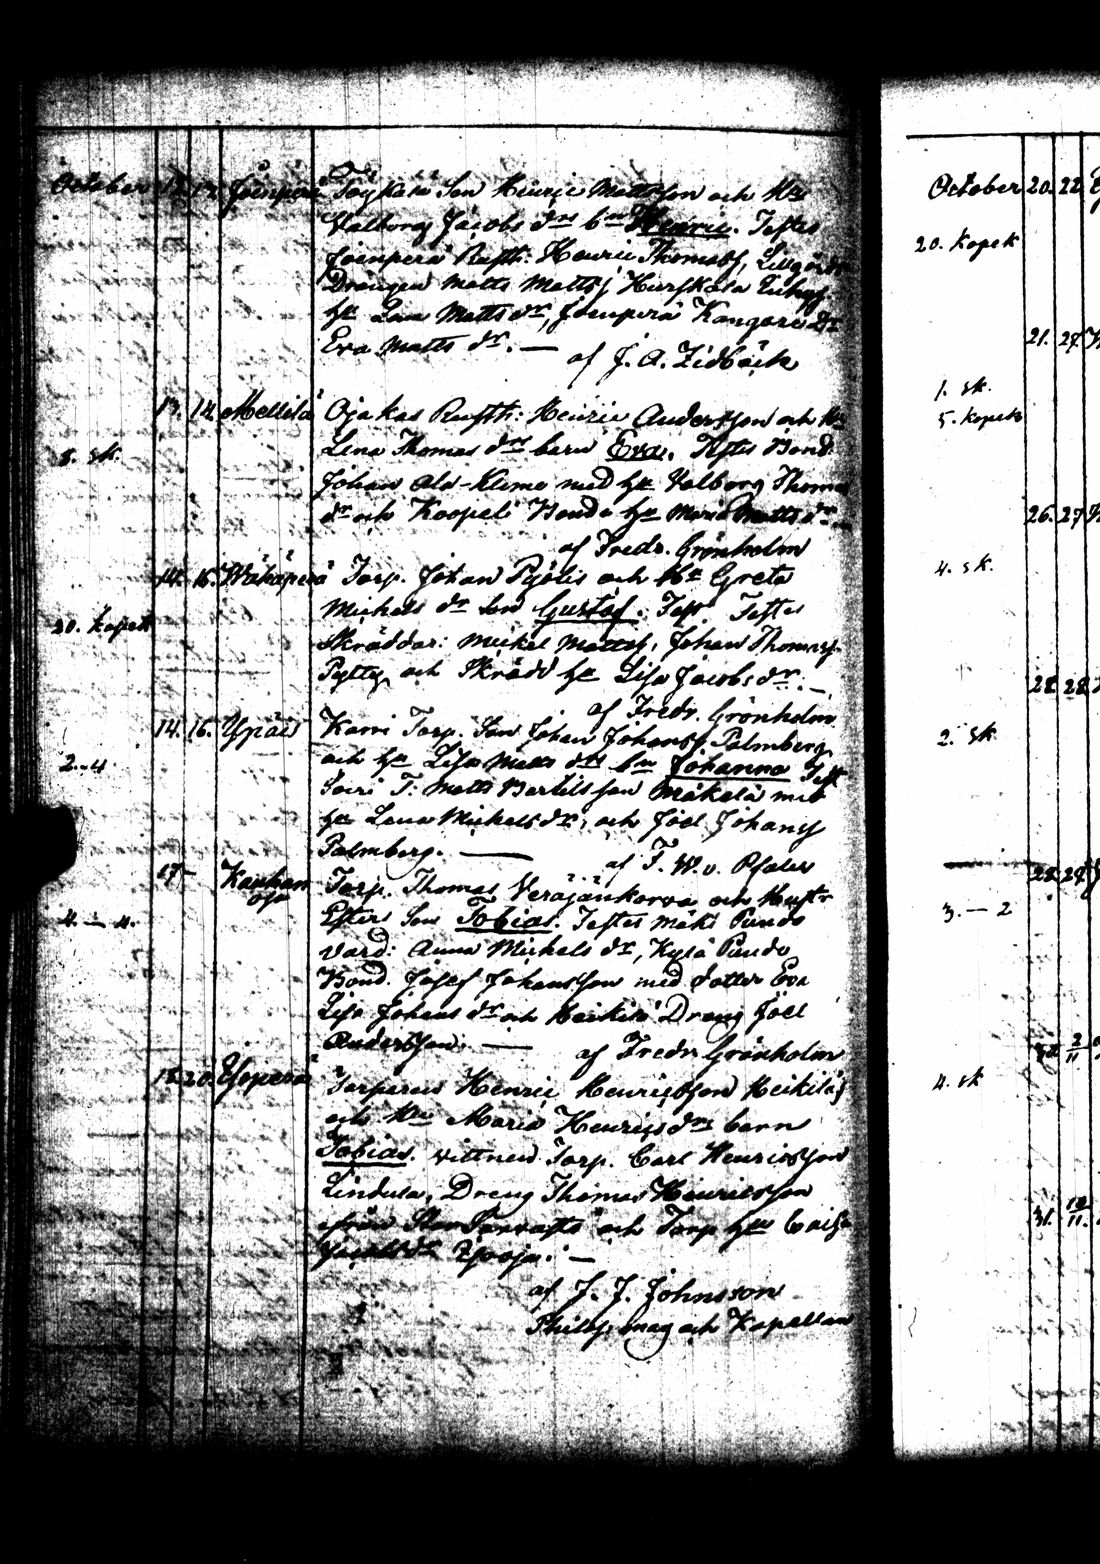 October 12. 12. Joenperä Töykälä Son Henric Mattsson och Hu
Valborg Jacobs drs bn Henric. Testes
Joenperä Rusth: Henric Thomass,
Drängen Matts Mattsj Hurskala
hu Lena Matts dr, Joenperä Kangare Dr
Eva Matts dr. — af J. A. Zidbäck
13. 14. Mellilä Ojakas Rusth: Henric Andersson och Hu
8. sk. Lena Thomas drs barn Eva. Testes Bond.
Johan Ala-Klemo med hu Valborg Thomas
dr och Koopeli Bonde hu Maria Matts dr
af Fredr. Grönholm
14. 16. Wähäperä Torp. Johan Pyölis och Hu Greta
20. kopek Michels dr Son Gustaf. Test. Testes
Skräddar: Mickel Mattsj, Johan Thomasj
Pytty och Skrädd hu Lisa Jacobs dr. —
af Fredr. Grönholm
14. 16. Ypäis Karri Torp. Son Johan Johansj. Palmberg
2.-4 och hu Lisa Matts drs bn Johanna Test
Soiri T: Matts Bertilsson Mäkelä med
hu Lena Michels dr, och Joel Johansj
Palmberg. — af F. W. v. Pfaler
17 - Kauhanoja Torp. Thomas Veräjänkorva och Hustr
4. — 4. Esters Son Tobias. Testes Mäki Pundo
värd: Anna Michels dr, Kylä Pundo
Bond. Josef Johansson med dotter Eva
Lisa Johans dr och Heikilä Dreng Joel
Andersson. — af Fredr Grönholm
18. 20. Yloperä Torparen Henric Henricsson Heikiläj
och Hu Maria Henrics drs barn
Tobias. vittnen Torp. Carl Henricsson
Lindula, Dreng Thomas Henricsson
ifrån och Torp hu Caisa
af J. J. Johnsson
Philos: mag och Kapellan
October 20. 22.
20. kopek
21. 24
1. sk.
5. kopek
26. 27
4. sk.
28. 28
2. sk
28. 29
3. — 2
2/11
4. sk
31. 10/11.